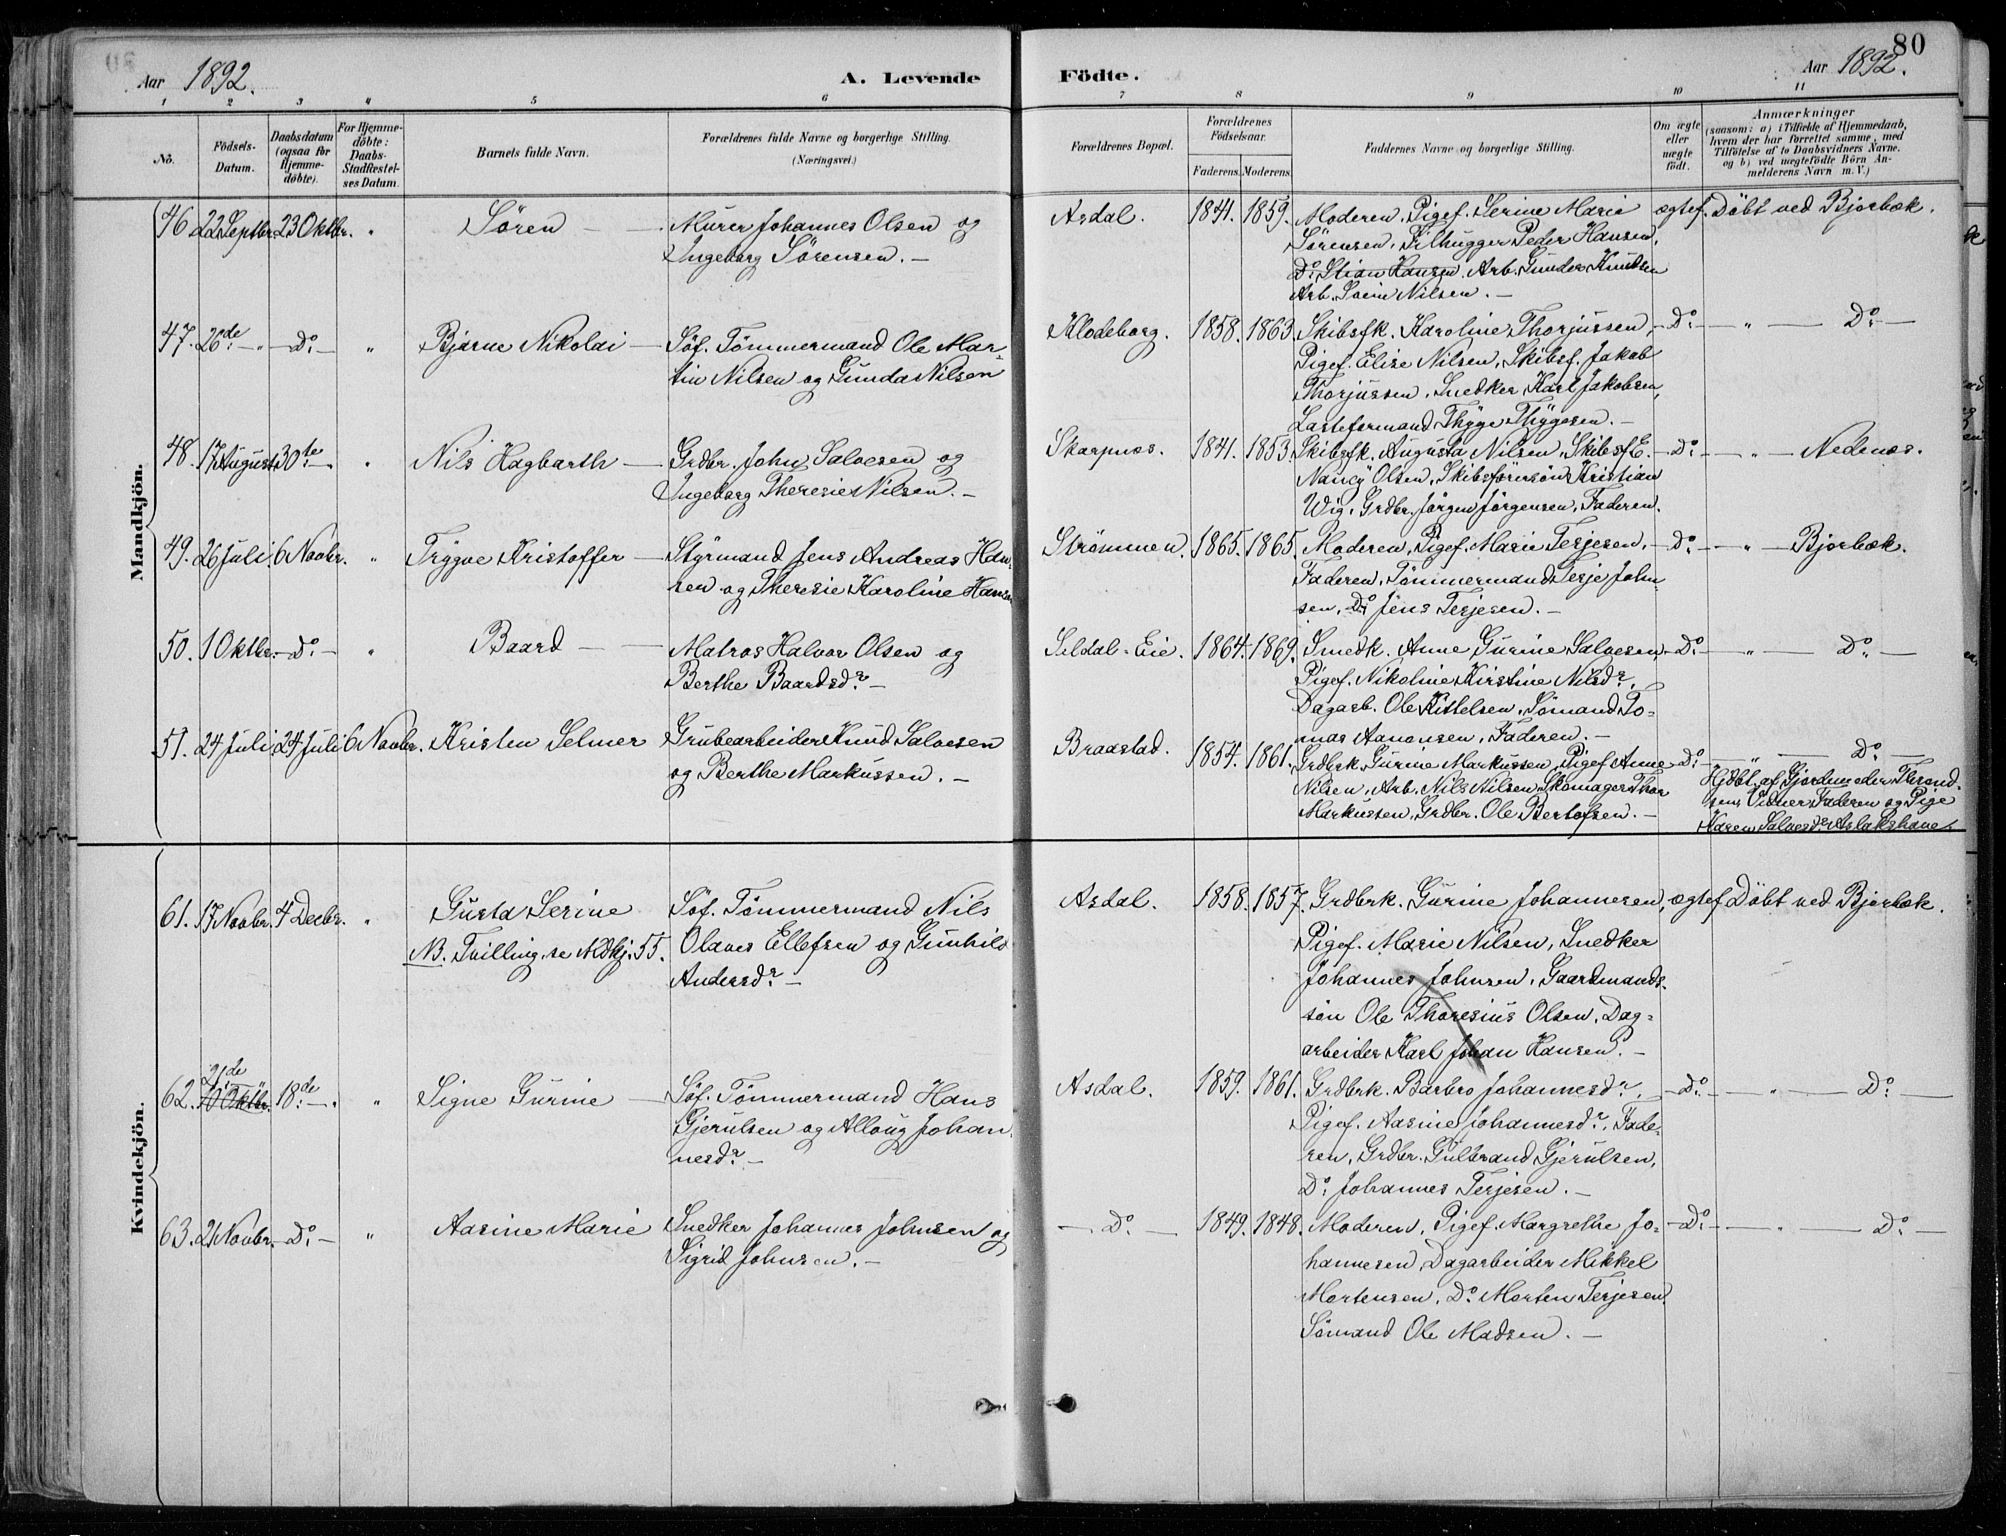 80
Aar 1892.
A. Levende Födte.
Aar 1892.
1 2 3 4 5 6 7 8 9 10 11
No.
Födsels-Datum.
Daabsdatum (ogsaa for Hjemme-döbte).
For Hjemme-döbte: Daabs-Stadfæstel-ses Datum.
Barnets fulde Navn.
Forældrenes fulde Navne og borgerlige Stilling.
(Næringsvei.)
Forældrenes Bopæl.
Forældrenes Födselsaar.
Faderens. Moderens.
Faddernes Navne og borgerlige Stilling.
Om ægte eller uægte födt.
Anmærkninger
(saasom: a) i Tilfælde af Hjemmedaab,
hvem der har forrettet samme, med
Tilföielse af to Daabsvidners Navne.
og b) ved uægtefödte Börn An-
melderens Navn m. V.)
Mandkjön.
46. 22 Septbr. 23 Oktbr. " Søren — Murer Johannes Olsen og
Ingeborg Sørensen. —
Asdal. 1841. 1859. Moderen, Pigef. Serine Marie
Sørensen, Filhugger Peder Hansen,
Do. Stian Hansen. Arb. Gunder Knudsen
Arb. Svein Nilsen. —
ægtef. Döbt ved Bjorbæk.
47. 26de — " — Do. — " Bjarne Nikolai — Söf. Tömmermand Ole Mar-
tin Nilsen og Gunda Nilsen
Klodeborg. 1858. 1863. Skibsfk. Karoline Thorjussen,
Pigef. Elise Nilsen, Skibsf. Jakob
Thorjussen, Snedker Karl Jakobsen,
Lasteformand Thyge Thygesen. —
— Do. — " — Do. —
48. 17 August. 30te — " " Nils Hagbarth — Grdbr. John Salvesen og
Ingeborg Theresie Nilsen. —
Skarpnæs. 1841. 1853. Skibsfk. Augusta Nilsen, Skibsf E.
Nancy Olsen, Skibsförersön Kristian
Wig, Grdbr. Jörgen Jörgensen, Faderen.
— Do. — " — Nedenæs.
49. 26 Juli. 6 Novbr. " Trygve Kristoffer — Styrmand Jens Andreas Han-
sen og Theresie Karoline Hansen
Strömmen. 1865. 1865. Moderen, Pigef. Marie Terjesen,
Faderen, Tömmermand Terje John-
sen, Do. Jens Terjesen. —
— Do. — " — Bjorbæk.
50. 1 Oktbr. — Do. — " Baard — Matros Halvor Olsen og
Berthe Baardsdr. —
Seldal-Eie. 1864. 1869. Smedk. Anne Gurine Salvesen,
Pigef. Nikoline Kirstine Nilsdr.,
Dagarb. Ole Kittelsen, Sömand To-
mas Aanonsen, Faderen. —
— Do. — " — Do. —
51. 24 Juli 24 Juli 6 Novbr. Kristen Selmer Grubearbeider Knud Salvesen
og Berthe Markussen. —
Braastad. 1854. 1861. Grdbrk. Gurine Markussen, Pigef. Anne
Nilsen, Arb. Nils Nilsen, Skomager Thor
Markussen, Grdbr. Ole Bertofsen. —
— Do. — " — Do. —
Hjdbt. af Gjordemoder Thrond-
sen, Vidner, Faderen og Pige
Karen Salvesdr. Aslakshave.
Kvindekjön.
61. 17 Novbr. 4 Decbr. " Gusta Serine
NB. Tvilling, se Mdkj. 55.
Söf. Tömmermand Nils
Olaves Ellefsen og Gunhild
Andersdr. —
Asdal. 1858. 1857. Grdbrk. Gurine Johannesen,
Pigef. Marie Nilsen, Snedker
Johannes Johnsen, Gaardmands-
sön Ole Thoresius Olsen, Dag-
arbeider Karl Johan Hansen. —
ægtef. Döbt ved Bjorbæk.
62. 21de
10 Oktbr. 18de — " " Signe Gurine — Söf. Tömmermand Hans
Gjerulsen og Alloug Johan-
nesdr. —
Asdal. 1859. 1861. Grdbrk. Barbro Johannesdr.,
Pigef. Aasine Johannesdr., Fade-
ren, Grdbr. Gulbrand Gjerulsen,
Do. Johannes Terjesen. —
— Do. — " — Do. —
63. 21 Novbr. — Do. — " Aasine Marie Snedker Johannes Johnsen og
Sigrid Johnsen. —
— Do. — 1849. 1848. Moderen, Pigef. Margrethe Jo-
hannesen, Dagarbeider Mikkel
Mortensen, Do. Morten Terjesen,
Sömand Ole Madsen. —
— Do. — " — Do. —